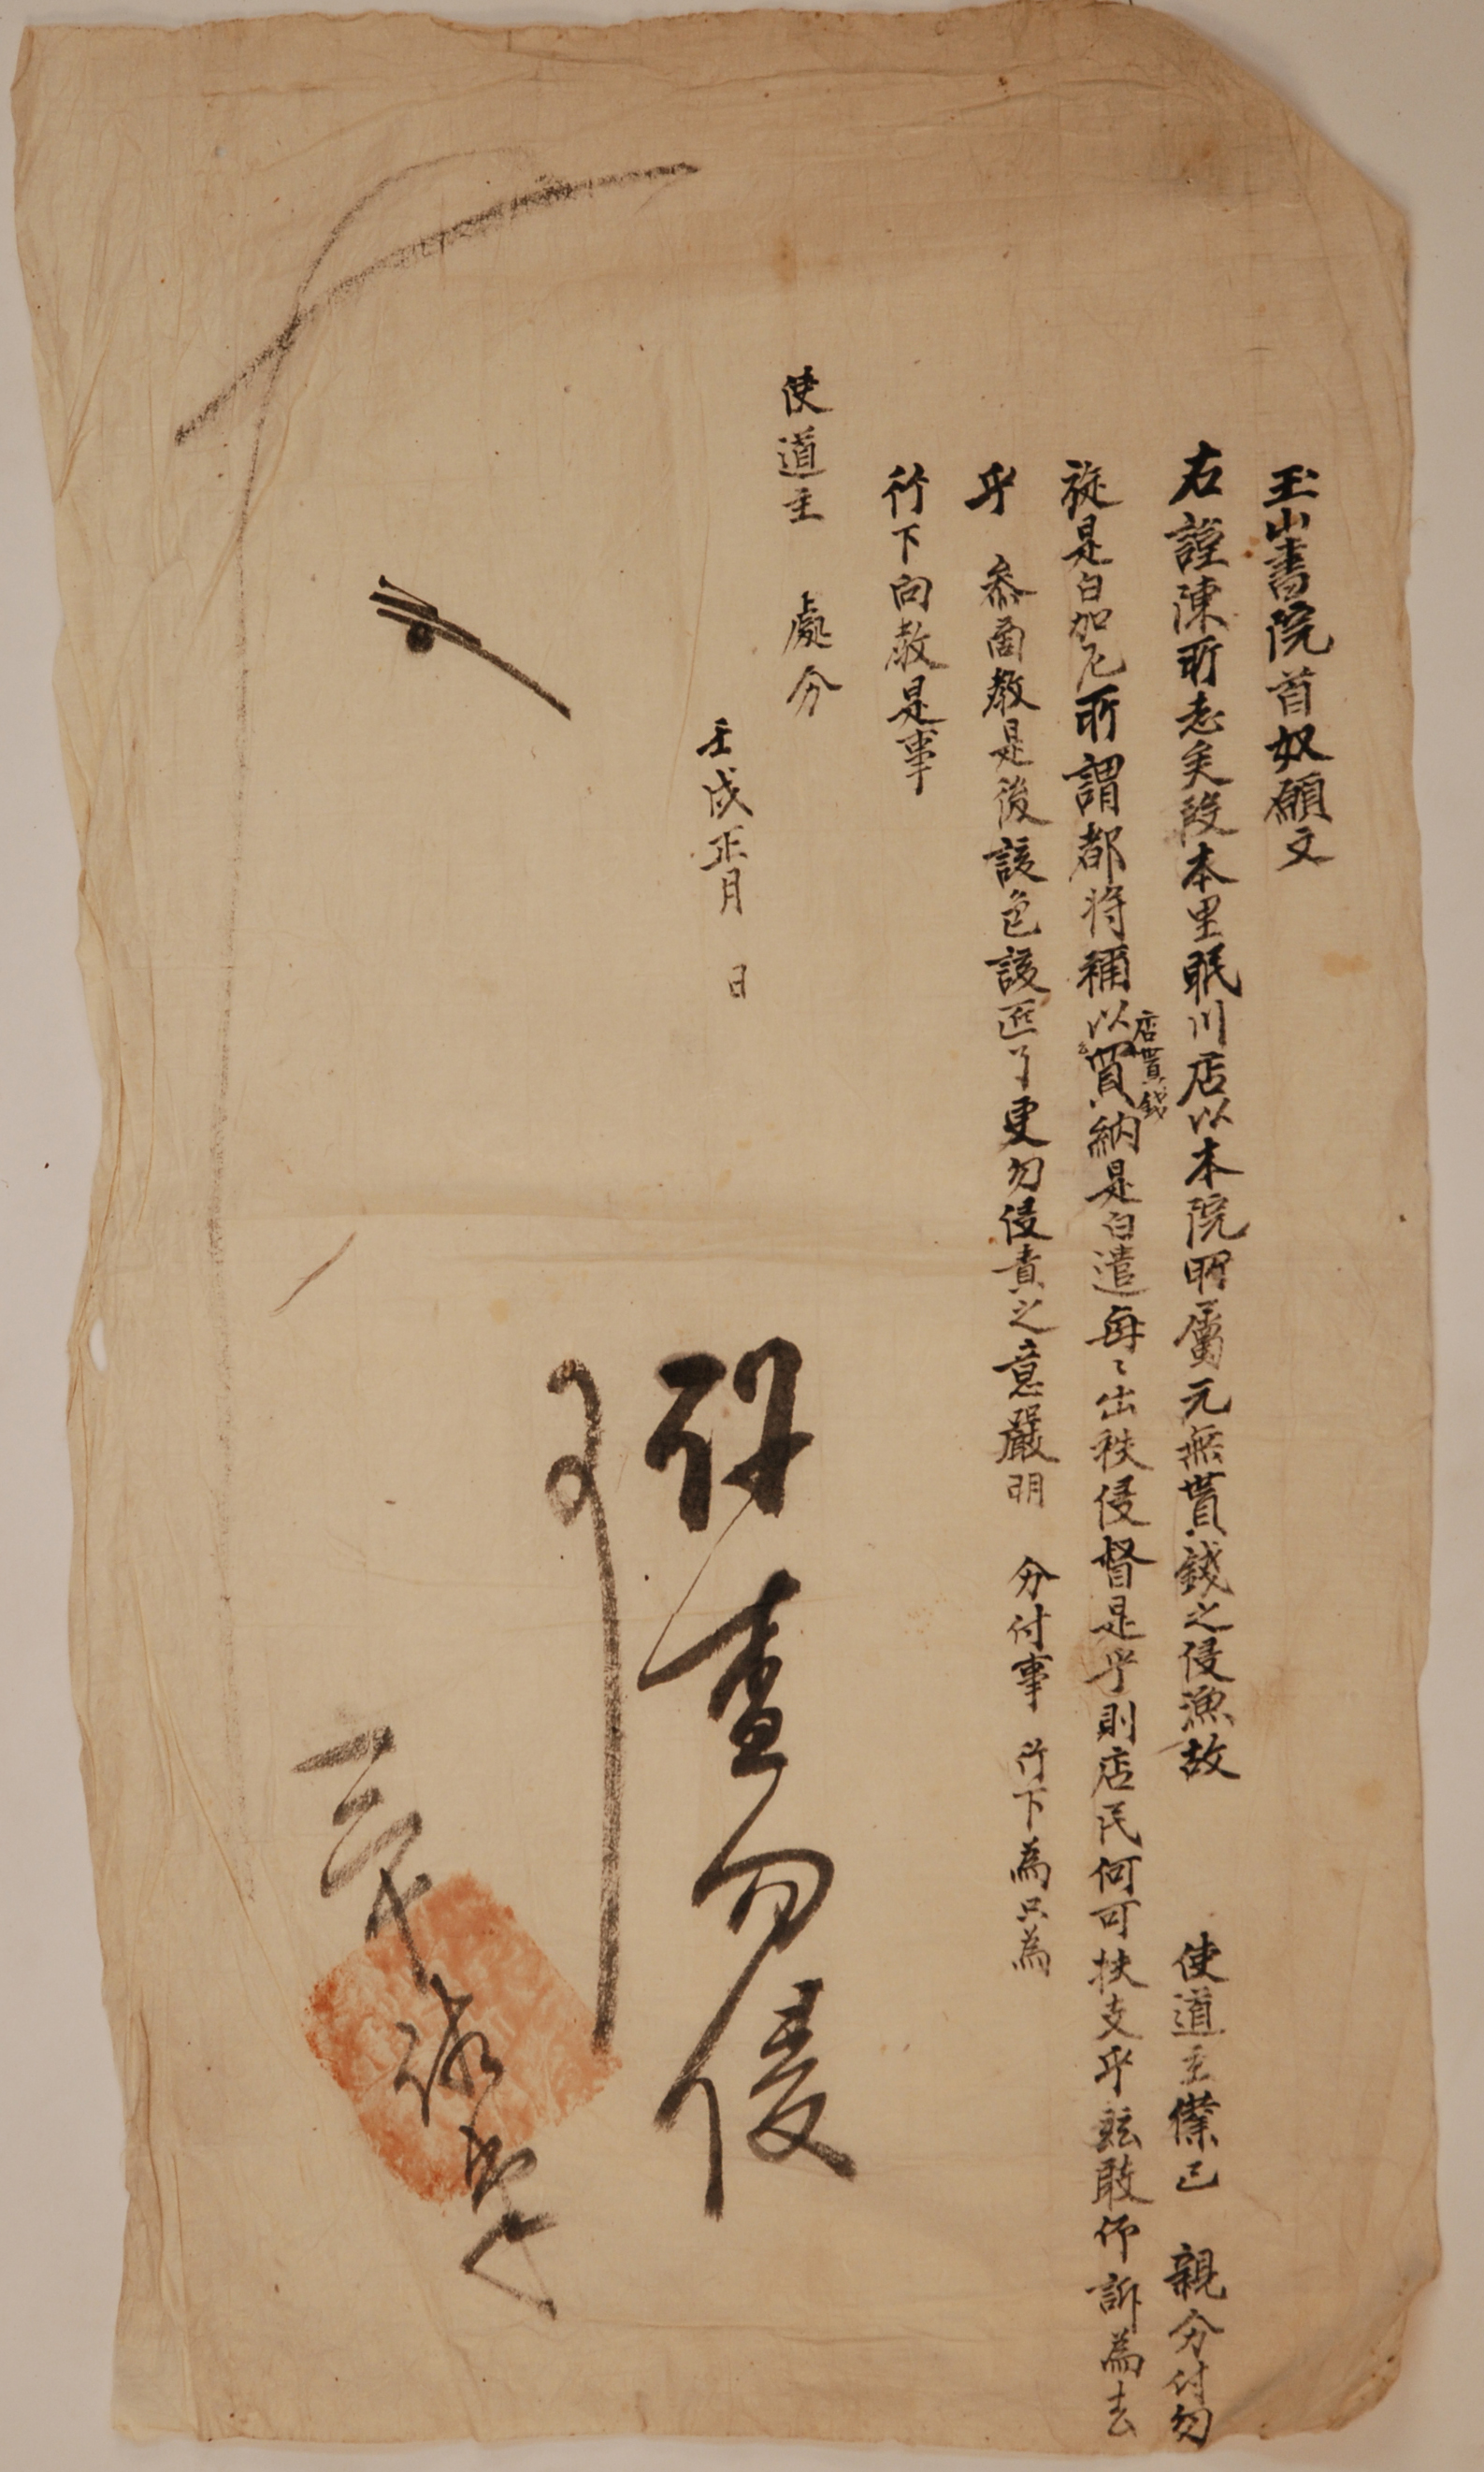 玉山書院首奴願文
右謹陳所志矣段本里眠川店以本院明屬元無貰錢之侵漁故 使道主儻已 親分付勿
施是白加尼所謂都將稱以店貰錢貿納是白遣每〻出秩侵督是乎則店民何可扶支乎玆敢仰訴為去
乎 叅商敎是後該色該匠了更勿侵責之意嚴明 分付事 行下為只為
行下向敎是事
使道主 處分
壬戌正月 日
查勿侵